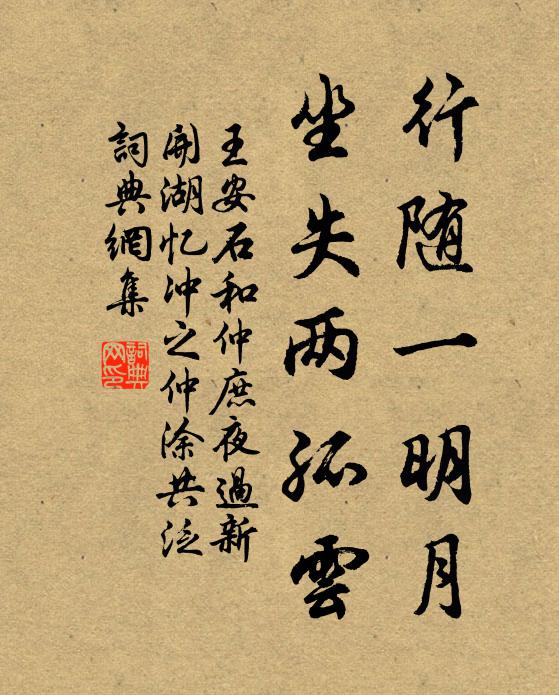 行随一明月
坐失两孤雲
王安石和仲庶夜過新
開湖忆冲之仲涂共泛
詞典網集
詞典網印